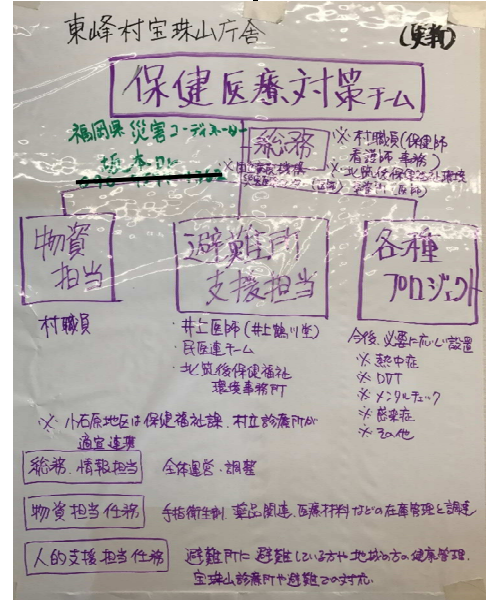 東峰村宝珠山庁舎
保健医療対策チーム
福岡県災害コーディネーター
総務
※村職員(保健師
看護師 事務)
※北筑後保健福祉環境
物資
担当
避難所
支援担当
各種
プロジェクト
村職員
・井上医師(
・民医連チーム
・北筑後保健福祉
環境事務所
今後、必要に応じ設置
※熱中症
※DVT
※メンタルチェック
※感染症
※その他
※小石原地区は保健福祉課、村立診療所が
適宜連携
総務、情報担当
全体運営・調整
物資担当任務
手指衛生剤、薬品関連、医療材料などの在庫管理と調達
人的支援担当任務
避難所に避難している方や地域の方の健康管理、
宝珠山診療所や避難での対応